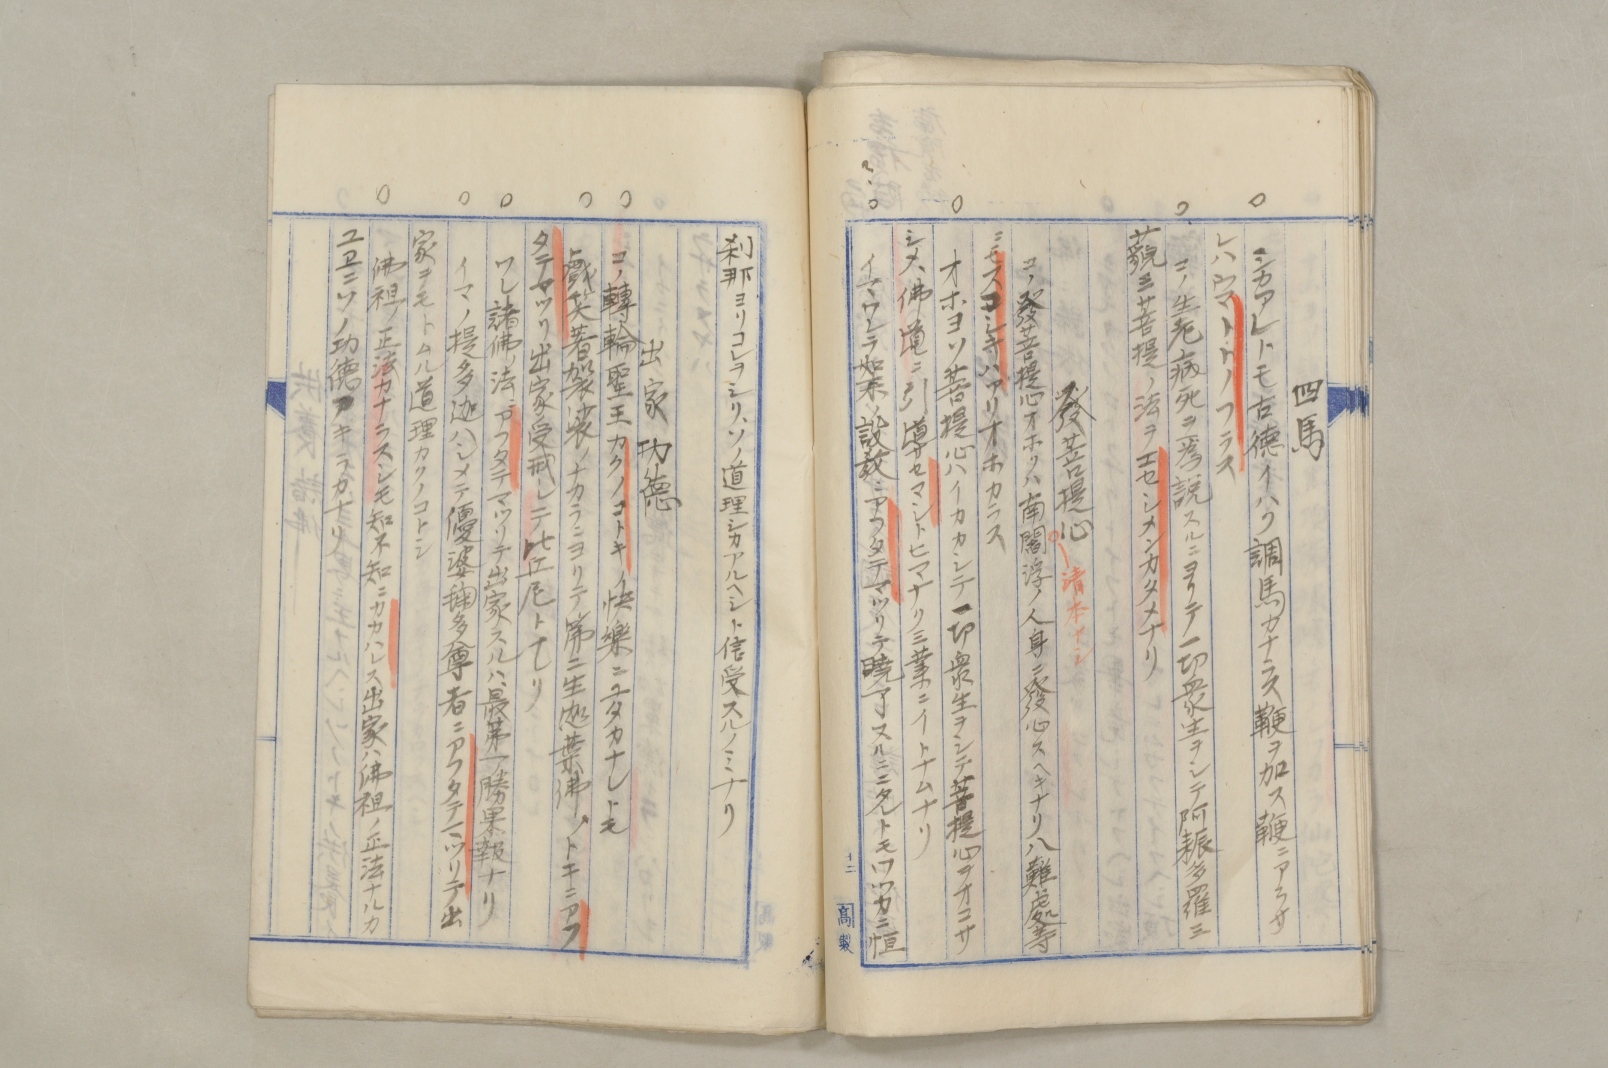 四馬
シカアレトモ古德イハク調馬カナラス鞭ヲ加ス鞭ニアラサ
レハウマトヽノフラス
コノ生老病死ヲ爲說スルニヨリテ一切衆生ヲシテ阿耨多羅三
藐三菩提ノ法ヲエセシメンカタメナリ
發菩提心
清本ナシ
コノ發菩提心オホクハ南閻浮ノ人身ニ發心スヘキナリ八難處等
ニモスコシキハアリオホカラス
オホヨソ菩提心ハイカカシテ一切衆生ヲシテ菩提心ヲオコサ
シメ、佛道ニ引導セマシトヒマナク三業ニイトナムナリ
イマワレラ如來ノ說敎ニアフタテマツリテ曉了スルニニタレトモワツカニ恒
十二
髙製
刹那ヨリコレヲシリ、ソノ道理シカアルヘシト信受スルノミナリ
出家功德
コノ轉輪聖王カクノコトキノ快樂ニユタカナレトモ
戲笑著袈裟ノチカラニヨリテ第二生迦葉佛ノトキニアフ
タテマツリ出家受戒シテ比丘尼トナレリ
ワレ諸佛ノ法ニアフタテマツリテ出家スルハ、最第一勝果報ナリ
イマノ提多迦ハシメテ優婆毱多尊者ニアフタテマツリテ出
家ヲモトムル道理カクノコトシ
佛祖ノ正法カナラスシモ知不知ニカカハレス出家ハ佛祖ノ正法ナルカ
ユヱニソノ功德アキラカナリ